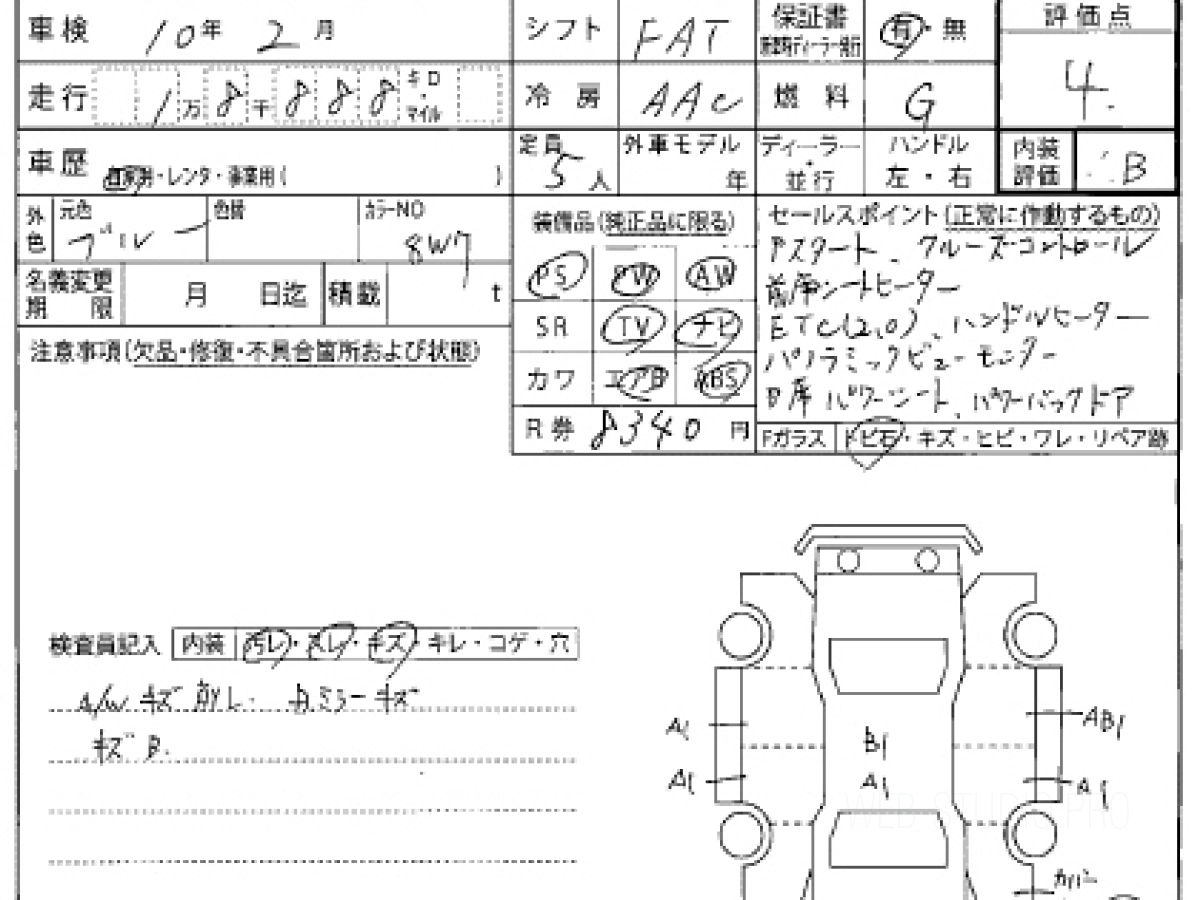 車検 10年 2月
シフト FAT
保証書 新車時ディーラー発行 有・無
評価点 4.
走行 1万8千888 キロ・マイル
冷房 AAC
燃料 G
車歴 自家用・レンタ・事業用( )
定員 5人
外車モデル 年
ディーラー・並行
ハンドル 左・右
内装評価 B
外色 元色 ブルー 色替 カラーNO 8W7
名義変更期限 月 日迄 積載 t
注意事項(欠品・修復・不具合箇所および状態)
装備品(純正品に限る)
PS PW AW
SR TV ナビ
カワ エアB ABS
R券 8340円
セールスポイント(正常に作動するもの)
Pスタート、クルーズコントロール
前席シートヒーター
ETC(2.0)、ハンドルヒーター
パノラミックビューモニター
D席パワーシート、パワーバックドア
Fガラス トビ石・キズ・ヒビ・ワレ・リペア跡
検査員記入 内装 汚レ・スレ・キズ・キレ・コゲ・穴
A/Wキズ 前L. ミラーキズ
キズ B.
A1
AB1
B1
A1
A1
A1
カバー